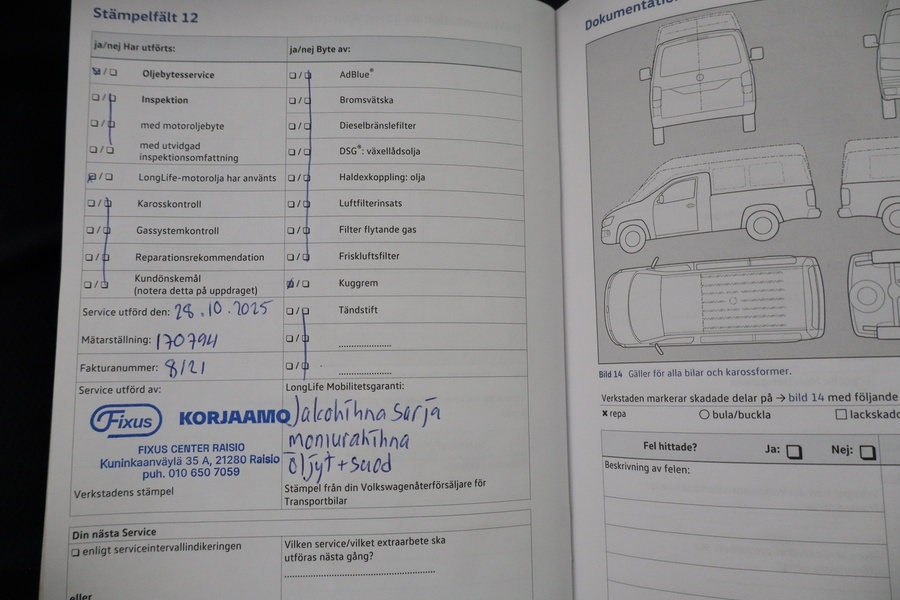 Stämpelfält 12
ja/nej Har utförts:
ja/nej Byte av:
Oljebytesservice
AdBlue®
Inspektion
Bromsvätska
med motoroljebyte
Dieselbränslefilter
med utvidgad
inspektionsomfattning
DSG®: växellådsolja
LongLife-motorolja har använts
Haldexkoppling: olja
Karosskontroll
Luftfilterinsats
Gassystemkontroll
Filter flytande gas
Reparationsrekommendation
Friskluftsfilter
Kundönskemål
(notera detta på uppdraget)
Kuggrem
Service utförd den: 28.10.2025
Tändstift
Mätarställning: 170794
Fakturanummer: 8/21
Service utförd av:
LongLife Mobilitetsgaranti:
Fixus KORJAAMO
FIXUS CENTER RAISIO
Kuninkaanväylä 35 A, 21280 Raisio
puh. 010 650 7059
Jakohihna sarja
moniurahihna
öljyt + suod
Verkstadens stämpel
Stämpel från din Volkswagenåterförsäljare för
Transportbilar
Din nästa Service
enligt serviceintervallindikeringen
Vilken service/vilket extraarbete ska
utföras nästa gång?
eller
Bild 14 Gäller för alla bilar och karossformer.
Verkstaden markerar skadade delar på → bild 14 med följande
repa
bula/buckla
Fel hittade?
Ja:
Nej:
Beskrivning av felen: